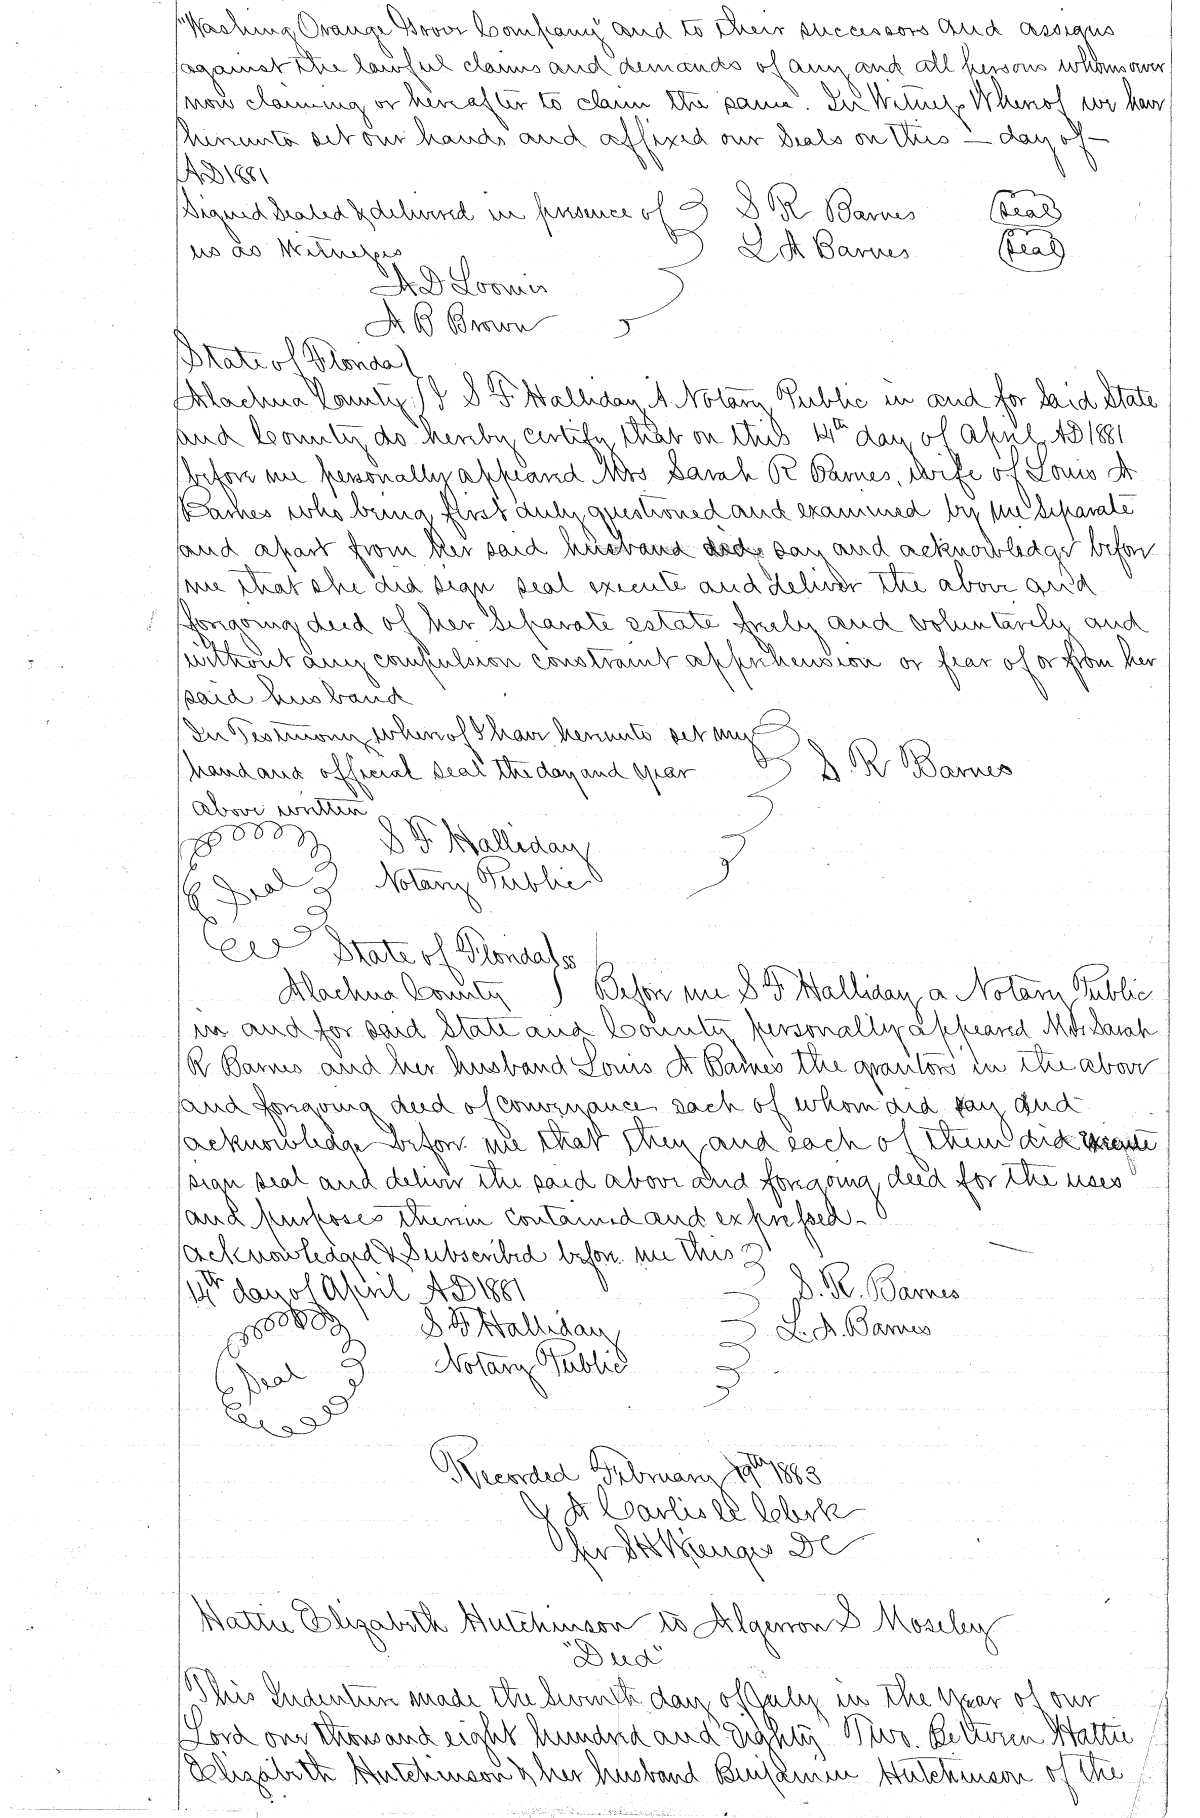 "Washing Orange Grove Company" and to their successors and assigns
against the lawful claims and demands of any and all persons whomsoever
now claiming or hereafter to claim the same. In Witness Whereof we have
hereunto set our hands and affixed our seals on this — day of —
AD 1881
Signed Sealed & delivered in presence of S R Barnes Seal
us as Witnesses L A Barnes Seal
A D Loomis
A B Brown
State of Florida
Alachua County I S F Halliday A Notary Public in and for said State
and County do hereby certify that on this 14th day of April AD 1881
before me personally appeared Mrs Sarah R Barnes, wife of Louis A
Barnes who being first duly questioned and examined by me separate
and apart from her said husband did say and acknowledge before
me that she did sign seal execute and deliver the above and
foregoing deed of her separate estate freely and voluntarily and
without any compulsion constraint apprehension or fear of or from her
said husband
In Testimony whereof I have hereunto set my
hand and official seal the day and year S. R Barnes
above written
S F Halliday
Seal Notary Public
State of Florida ss
Alachua County Before me S F Halliday a Notary Public
in and for said State and County personally appeared Mrs Sarah
R Barnes and her husband Louis A Barnes the grantors in the above
and foregoing deed of conveyance each of whom did say and
acknowledge before me that they and each of them did execute
sign seal and deliver the said above and foregoing deed for the uses
and purposes therein contained and expressed -
Acknowledged & Subscribed before me this
14th day of April AD 1881 S. R. Barnes
S F Halliday L. A. Barnes
Seal Notary Public
Recorded February 19th 1883
J A Carlisle Clerk
per S H DC
Hattie Elizabeth Hutchinson to Algernon S Moseley
"Deed"
This Indenture made the Seventh day of July in the Year of our
Lord one thousand eight hundred and Eighty Two. Between Hattie
Elizabeth Hutchinson & her husband Benjamin Hutchinson of the